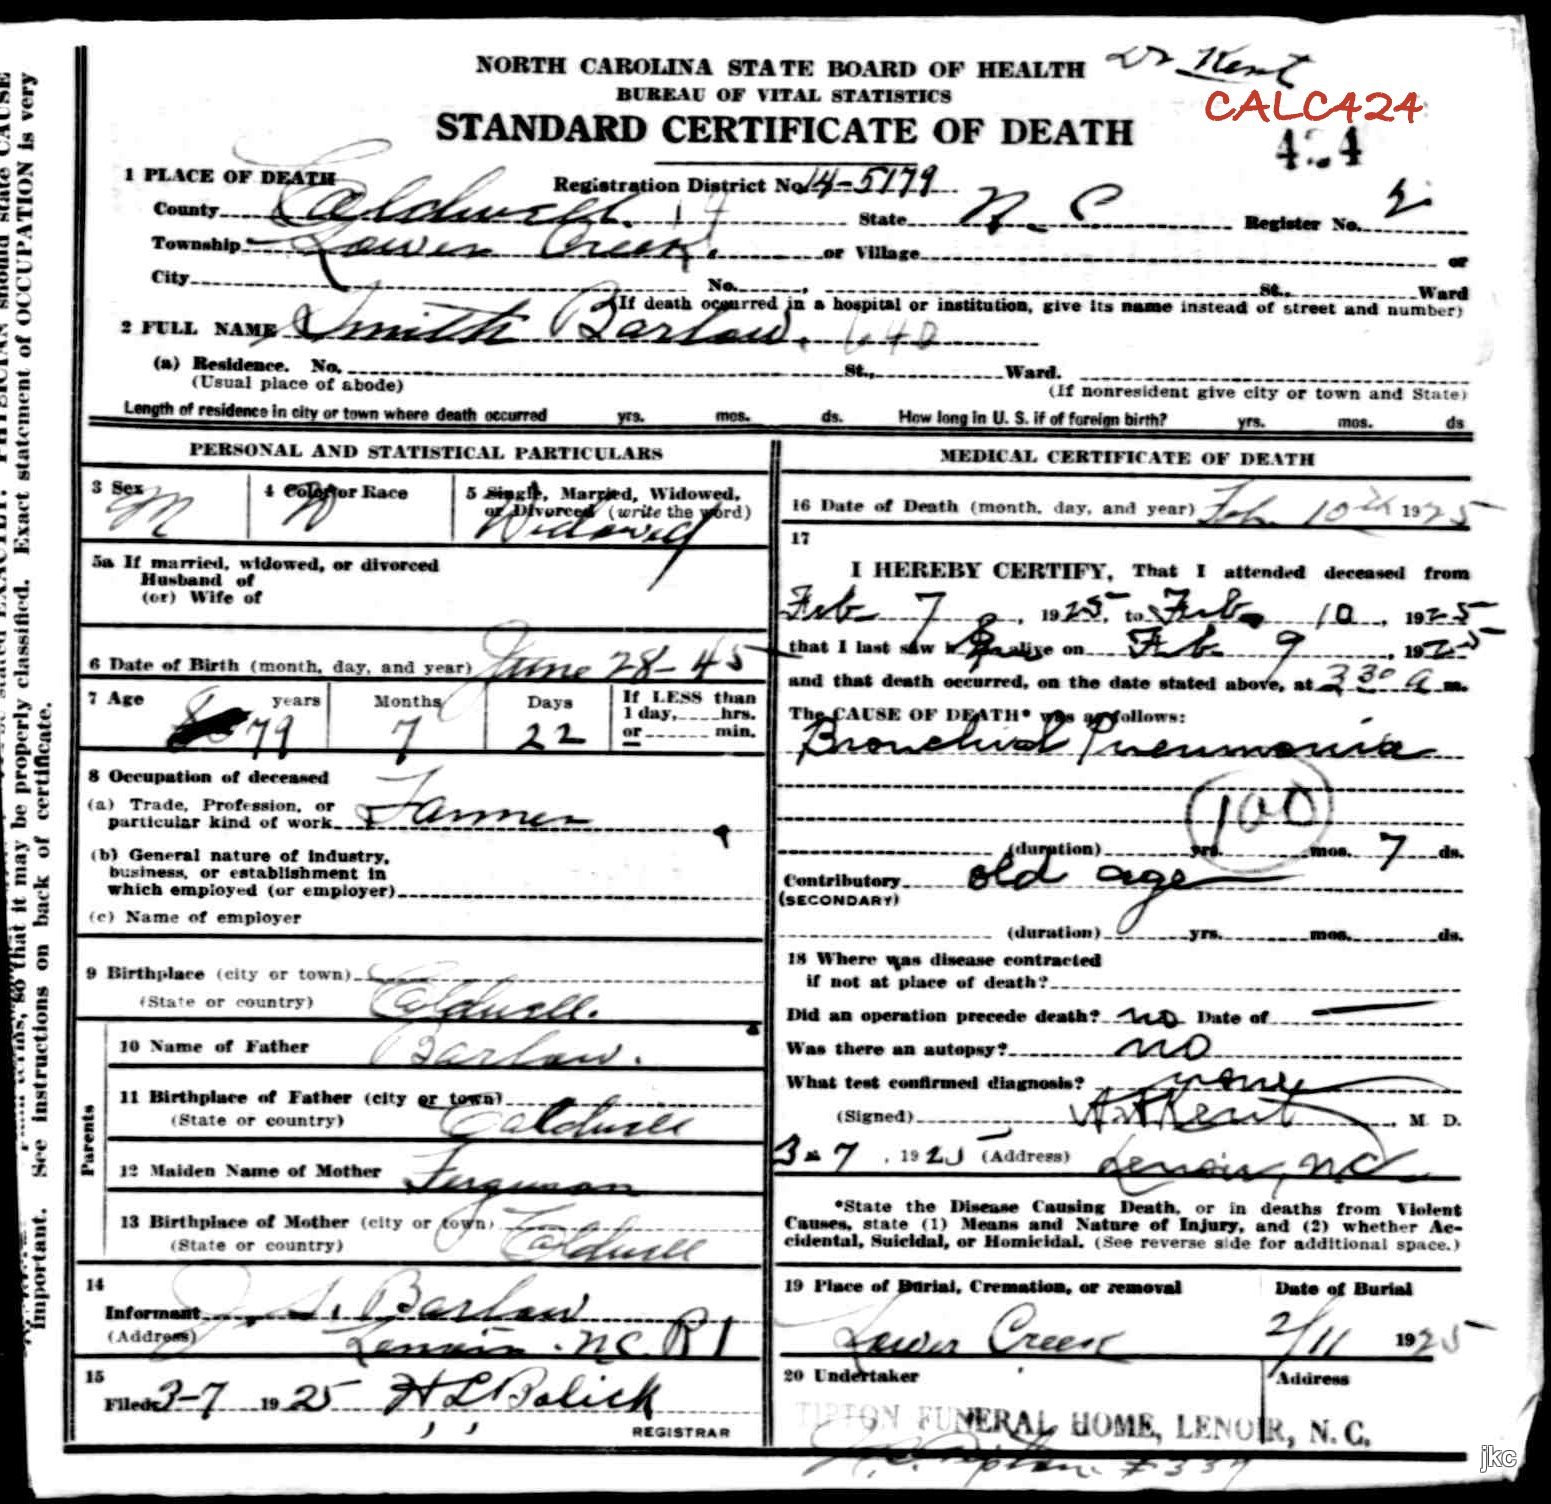 NORTH CAROLINA STATE BOARD OF HEALTH
Dr Kent
BUREAU OF VITAL STATISTICS
CALC424
STANDARD CERTIFICATE OF DEATH
1 PLACE OF DEATH
Registration District No. 14-5179
County Caldwell. 14 State N. C. Register No. 2
Township Lower Creek. or Village or
City No. , St., Ward
(If death occurred in a hospital or institution, give its name instead of street and number)
2 FULL NAME Smith Barlow. 640
(a) Residence. No. St., Ward.
(Usual place of abode) (If nonresident give city or town and State)
Length of residence in city or town where death occurred yrs. mos. ds. How long in U. S. if of foreign birth? yrs. mos. ds
PERSONAL AND STATISTICAL PARTICULARS
3 Sex 4 Color or Race 5 Single, Married, Widowed,
or Divorced (write the word)
M W Widowed
5a If married, widowed, or divorced
Husband of
(or) Wife of
6 Date of Birth (month, day, and year) June 28-45
7 Age years Months Days If LESS than
1 day, hrs.
or min.
79 7 22
8 Occupation of deceased
(a) Trade, Profession, or
particular kind of work Farmer
(b) General nature of industry,
business, or establishment in
which employed (or employer)
(c) Name of employer
9 Birthplace (city or town)
(State or country) Caldwell.
Parents
10 Name of Father Barlow.
11 Birthplace of Father (city or town)
(State or country) Caldwell
12 Maiden Name of Mother Ferguson
13 Birthplace of Mother (city or town)
(State or country) Caldwell
14
Informant J. S. Barlow
(Address) Lenoir. N.C. R1
15
Filed 3-7 1925 H L Bolick
REGISTRAR
MEDICAL CERTIFICATE OF DEATH
16 Date of Death (month, day, and year) Feb. 10th 1925
17
I HEREBY CERTIFY, That I attended deceased from
Feb 7, 1925, to Feb. 10, 1925
that I last saw h alive on Feb. 9, 1925
and that death occurred, on the date stated above, at 3 30 a m.
The CAUSE OF DEATH* was as follows:
Bronchial Pneumonia
100
(duration) yrs. mos. 7 ds.
Contributory old age
(SECONDARY)
(duration) yrs. mos. ds.
18 Where was disease contracted
if not at place of death?
Did an operation precede death? no Date of —
Was there an autopsy? no
What test confirmed diagnosis? none
(Signed) Kent, M D.
3-7, 1925 (Address) Lenoir, NC
*State the Disease Causing Death, or in deaths from Violent
Causes, state (1) Means and Nature of Injury, and (2) whether Ac-
cidental, Suicidal, or Homicidal. (See reverse side for additional space.)
19 Place of Burial, Cremation, or removal Date of Burial
Lower Creek 2/11 1925
20 Undertaker Address
TIPTON FUNERAL HOME, LENOIR, N. C.
Tipton # 337
important. See instructions on back of certificate.
so that it may be properly classified. Exact statement of OCCUPATION is very
jkc